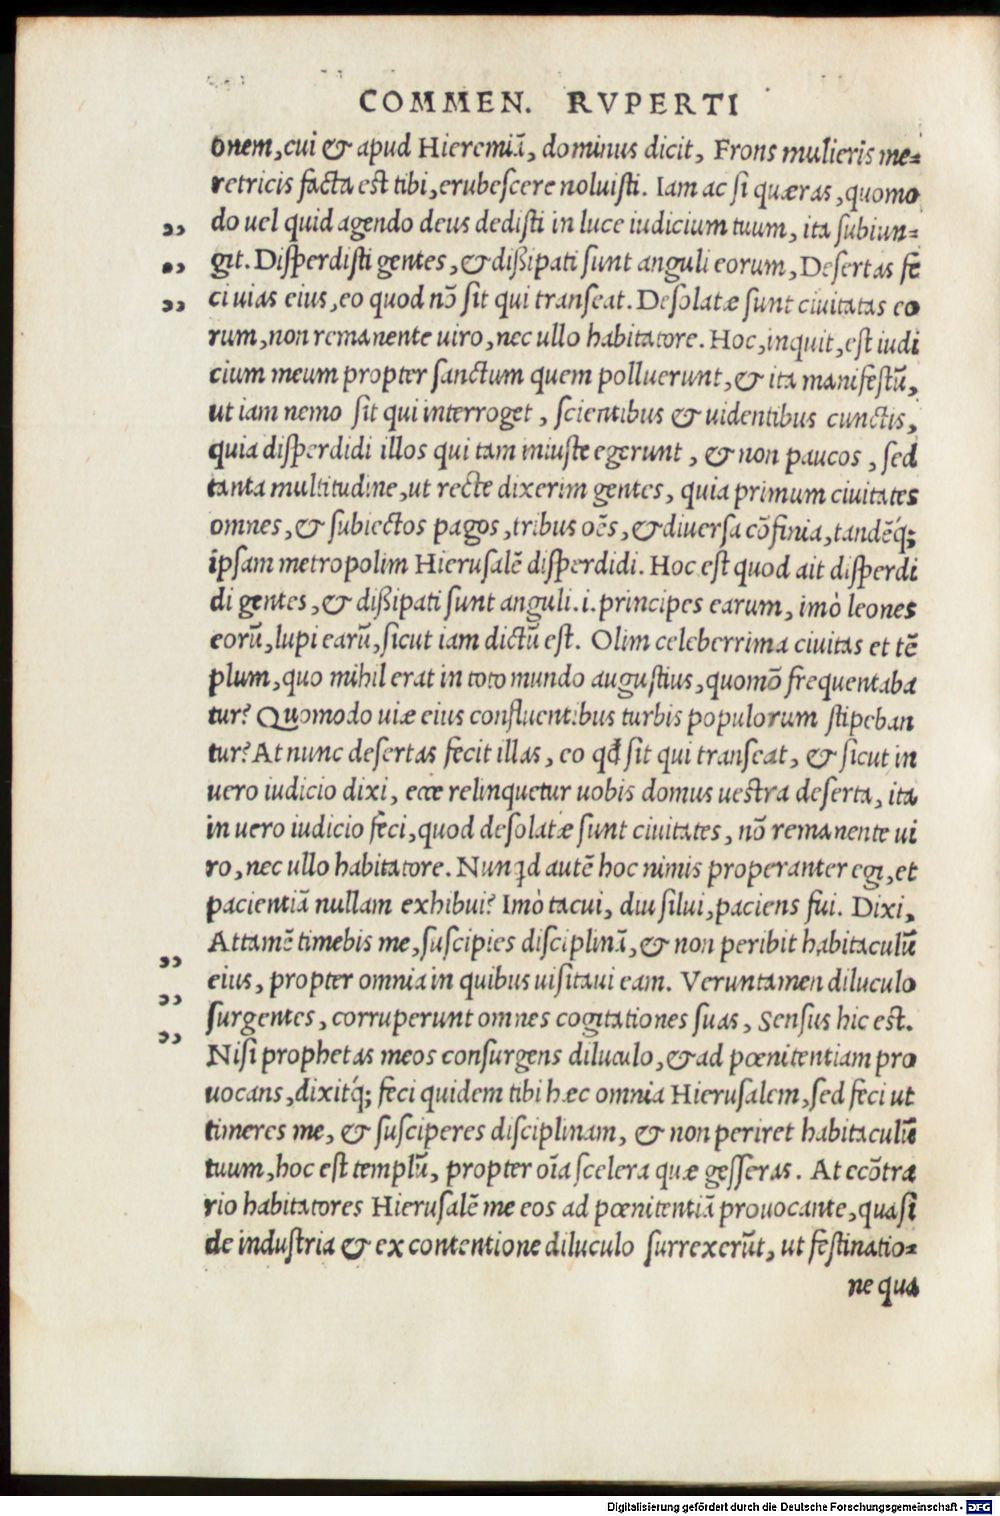 COMMEN. RVPERTI
onem, cui & apud Hieremiā, dominus dicit, Frons mulieris me-
retricis facta est tibi, erubescere noluisti. Iam ac si quæras, quomo
,, do uel quid agendo deus dedisti in luce iudicium tuum, ita subiun-
,, git. Disperdisti gentes, & dißipati sunt anguli eorum, Desertas fe
,, ci uias eius, eo quod nō sit qui transeat. Desolatæ sunt ciuitatas eo
rum, non remanente uiro, nec ullo habitatore. Hoc, inquit, est iudi
cium meum propter sanctum quem polluerunt, & ita manifestū,
ut iam nemo sit qui interroget, scientibus & uidentibus cunctis,
quia disperdidi illos qui tam iniuste egerunt, & non paucos, sed
tanta multitudine, ut recte dixerim gentes, quia primum ciuitates
omnes, & subiectos pagos, tribus oēs, & diuersa cōfinia, tandēq́;
ipsam metropolim Hierusalē disperdidi. Hoc est quod ait disperdi
di gentes, & dißipati sunt anguli .i. principes earum, imò leones
eorū, lupi earū, sicut iam dictū est. Olim celeberrima ciuitas et tē
plum, quo nihil erat in toto mundo augustius, quomō frequentaba
tur? Quomodo uiæ eius confluentibus turbis populorum stipeban
tur? At nunc desertas fecit illas, eo qd̄ sit qui transeat, & sicut in
uero iudicio dixi, ecce relinquetur uobis domus uestra deserta, ita
in uero iudicio feci, quod desolatæ sunt ciuitates, nō remanente ui
ro, nec ullo habitatore. Nunqd autē hoc nimis properanter egi, et
pacientiā nullam exhibui? Imò tacui, diu silui, paciens fui. Dixi,
,, Attamē timebis me, suscipies disciplinā, & non peribit habitaculū
,, eius, propter omnia in quibus uisitaui eam. Veruntamen diluculo
,, surgentes, corruperunt omnes cogitationes suas, Sensus hic est.
Nisi prophetas meos consurgens diluculo, & ad pœnitentiam pro
uocans, dixitq́; feci quidem tibi hæc omnia Hierusalem, sed feci ut
timeres me, & susciperes disciplinam, & non periret habitaculū
tuum, hoc est templū, propter oīa scelera quæ gesseras. At ecōtra
rio habitatores Hierusalē me eos ad pœnitentiā prouocante, quasi
de industria & ex contentione diluculo surrexerūt, ut festinatio-
ne qua
Digitalisierung gefördert durch die Deutsche Forschungsgemeinschaft - DFG